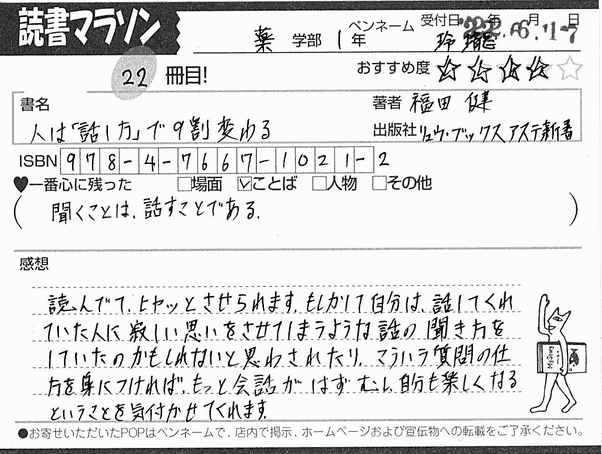 読書マラソン
薬 学部 1年
ペンネーム 玲瓏
受付日 22年 6月 17日
22 冊目!
おすすめ度 ★★★★☆
書名
人は「話し方」で9割変わる
著者 福田 健
出版社 リュウ・ブックスアステ新書
ISBN 978-4-7667-1021-2
♥一番心に残った □場面 ☑ことば □人物 □その他
( 聞くことは、話すことである。 )
感想
読んでて、ヒヤッとさせられます。もしかして自分は、話してくれ
ていた人に寂しい思いをさせてしまうような話の聞き方を
していたのかもしれないと思わされたり、こういう質問の仕
方を身につければ、もっと会話がはずむし、自分も楽しくなる
ということを気付かせてくれます。
●お寄せいただいたPOPはペンネームで、店内で掲示、ホームページおよび宣伝物への転載をご了承ください。